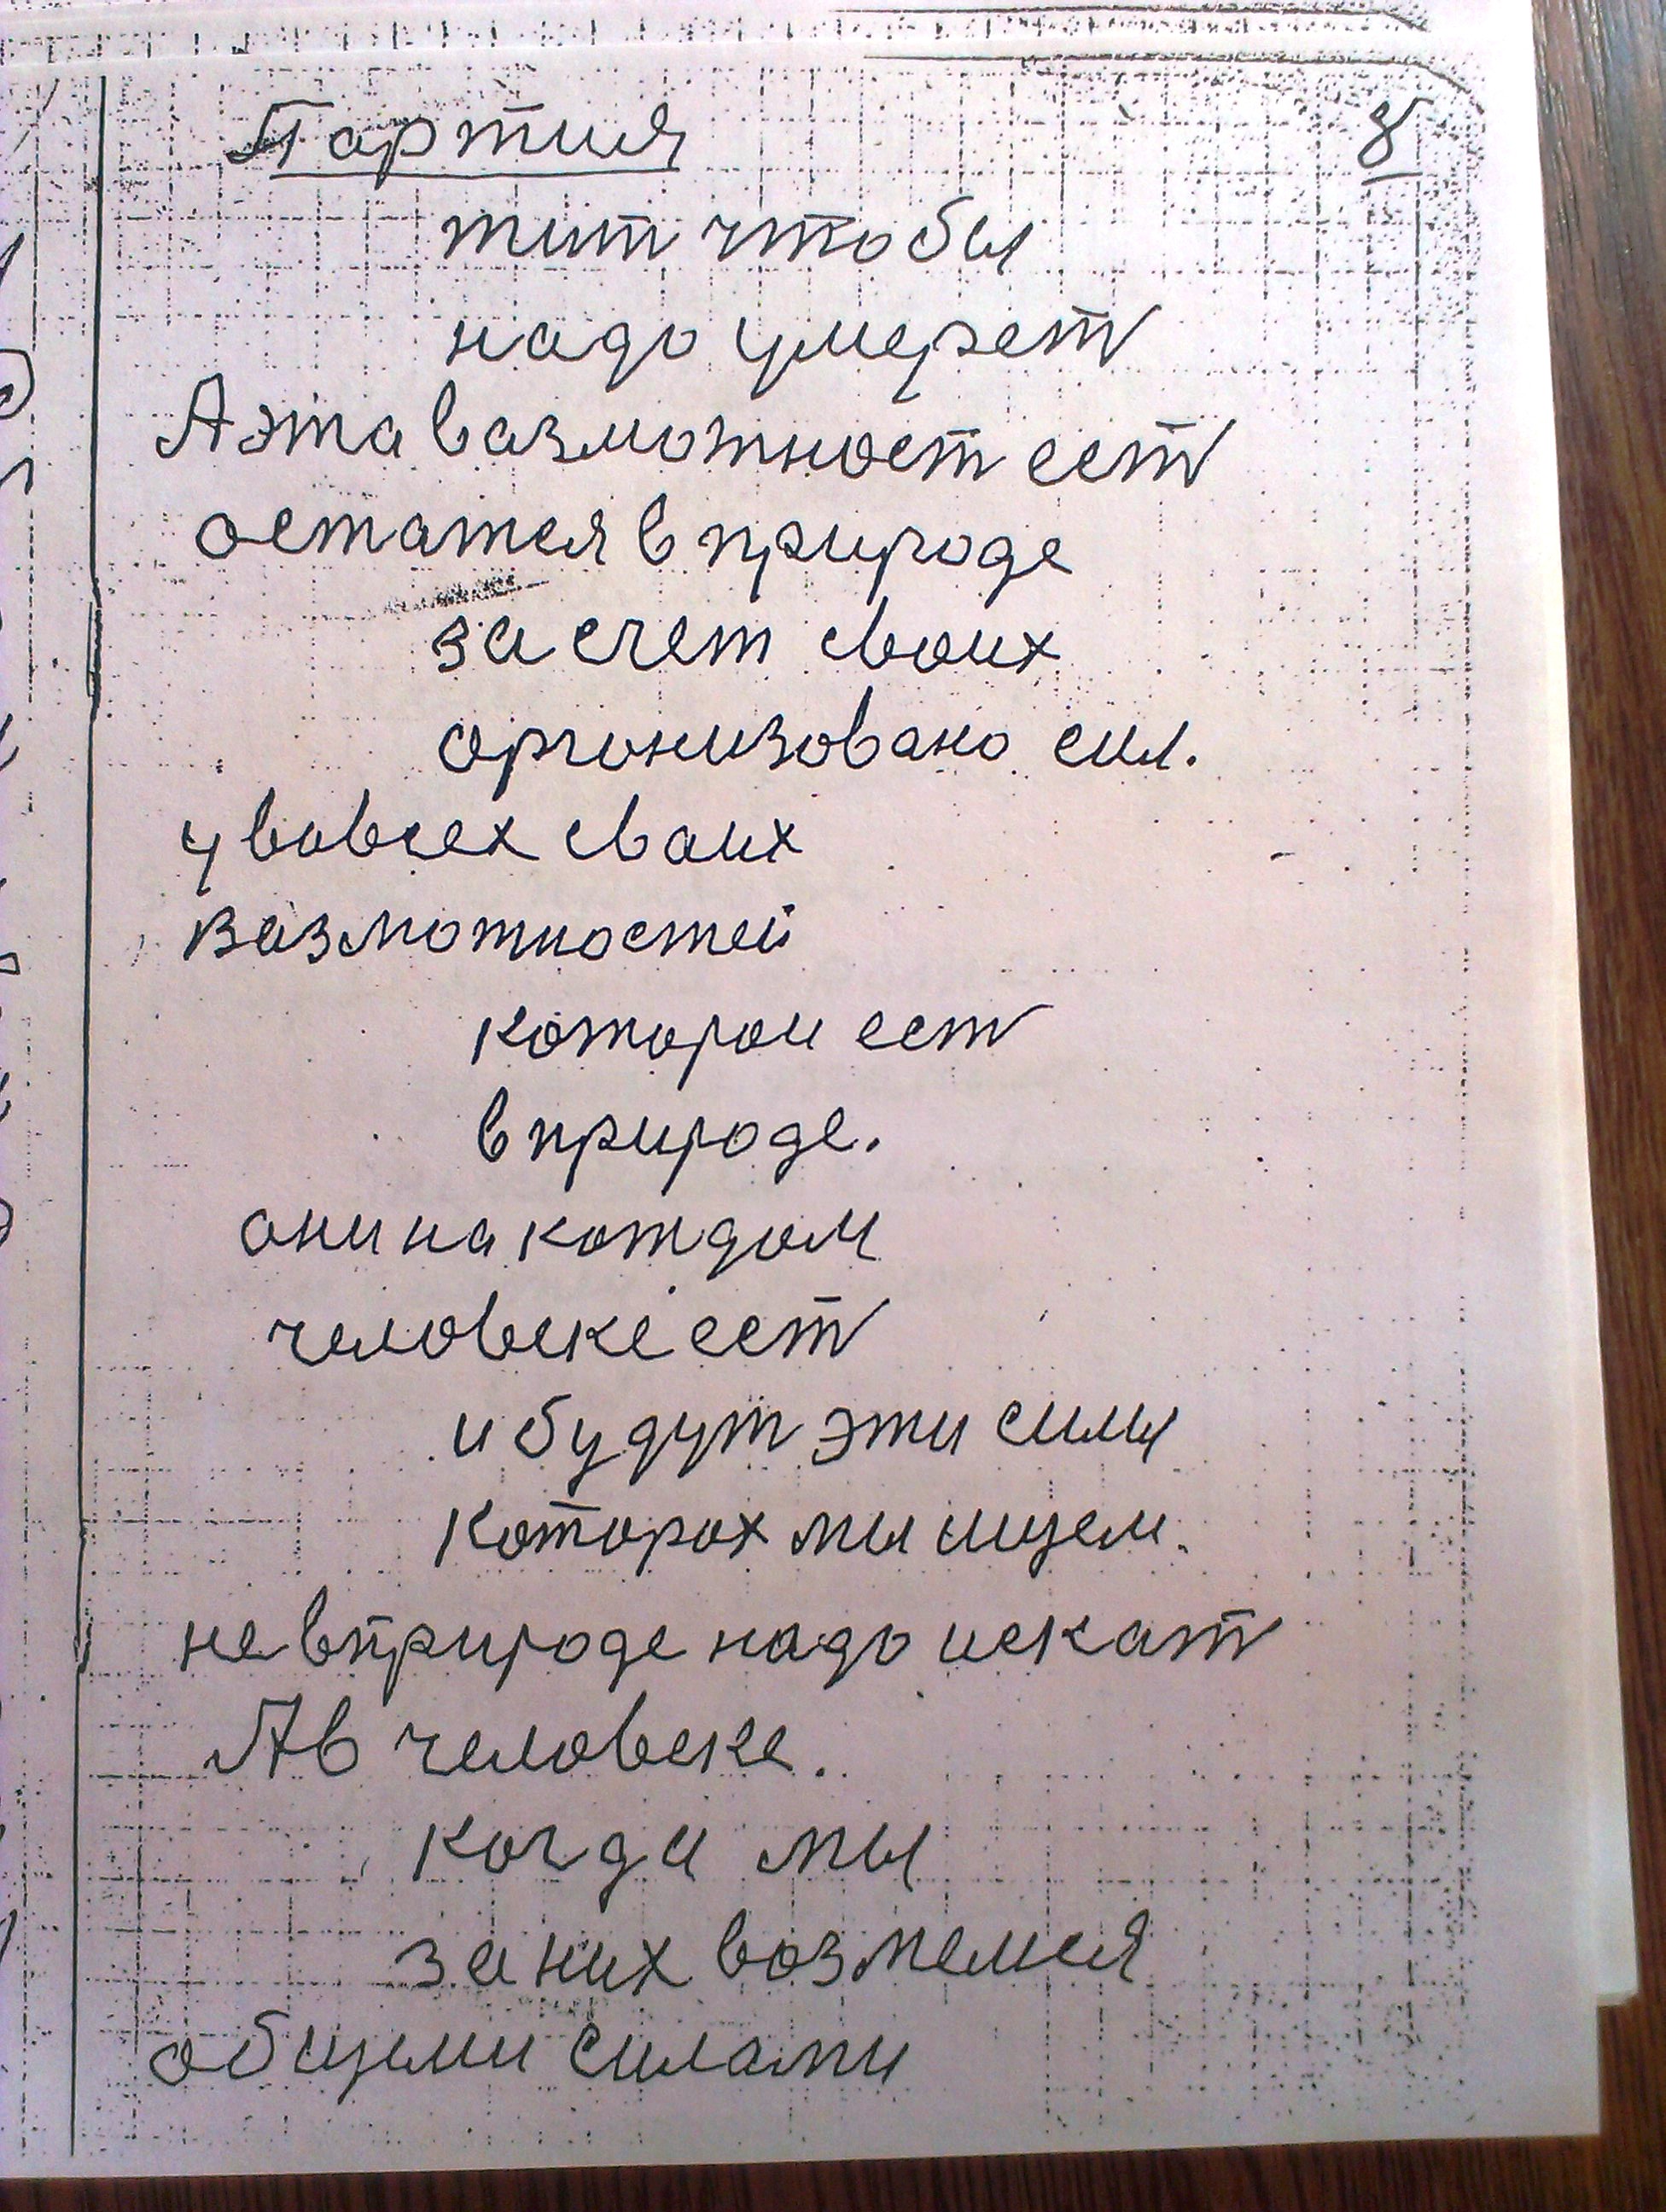 Партия 8
тит что бы
надо умерет
А эта вазмотност ест
остатся в природе
за счет своих
оргонизовано сил.
у вовсех сваих
вазмотностей
которои ест
в природе.
они на котдом
человеке ест
и будут эти силы
которох мы ищем.
не в природе надо искат
А в человеке.
когда мы
за них возмемся
общеми силами